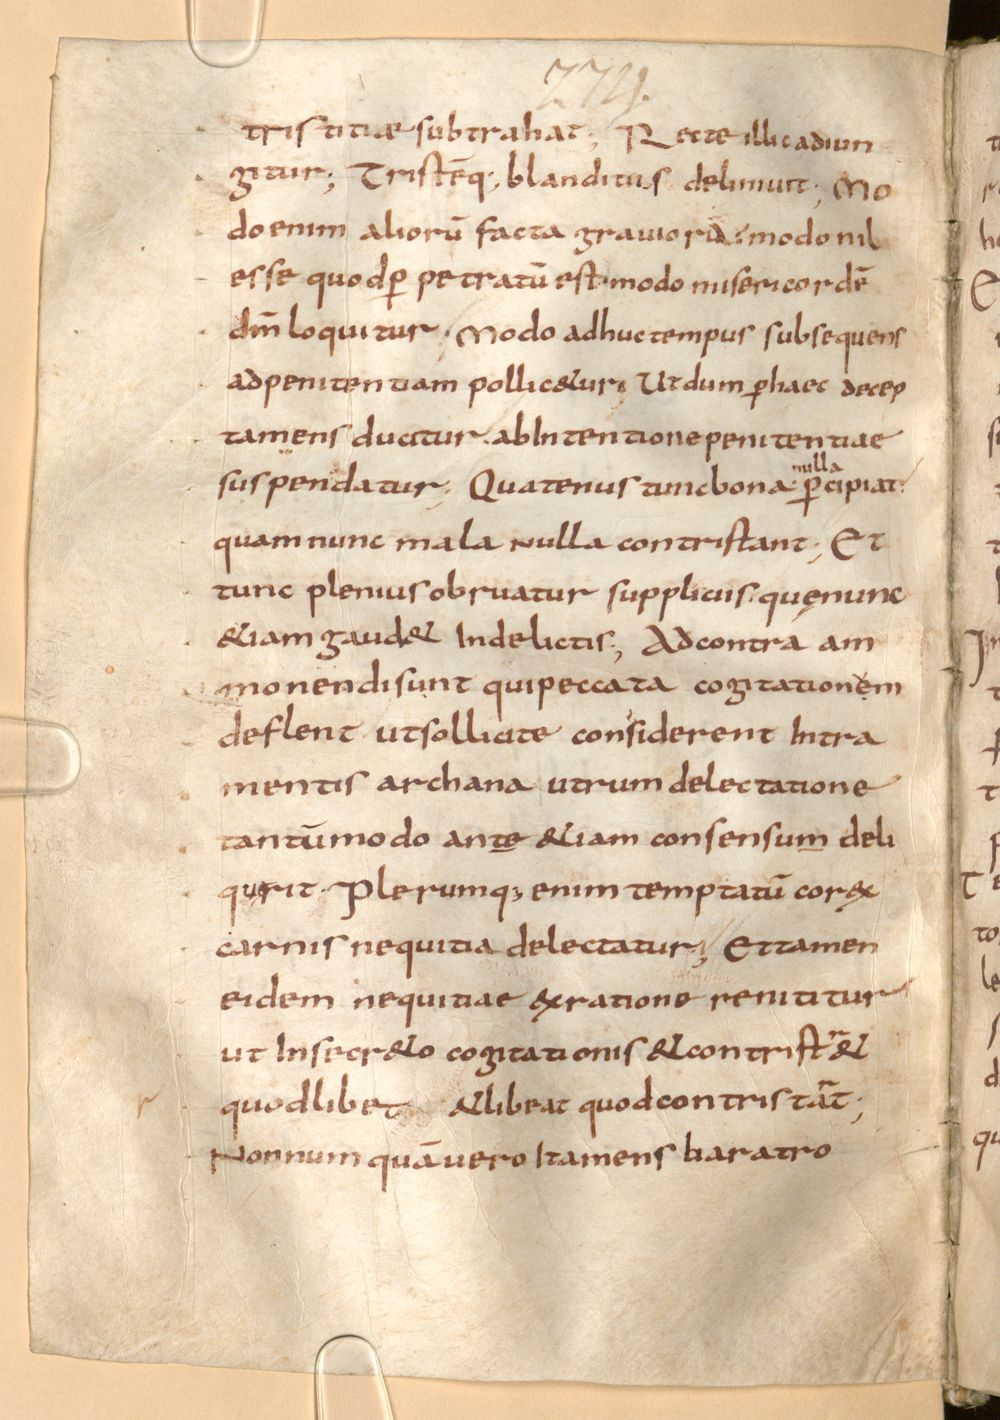 274.
tristitiae subtrahat; Recte illic adiun
gitur; Tristēq; blanditus deliniit; Mo
do enim aliorū facta grauiora; modo nil
esse quod ꝑpetratū est modo misericordē
dm̄ loquitur. Modo adhuc tempus subsequens
ad penitentiam pollic&ur; Ut dum ꝑ haec decep
ta mens ducitur ab Intentione penitentiae
suspendatur; Quatenus tunc bona nulla ꝑcipiat;
quam nunc mala nulla contristant; Et
tunc plenius obruatur suppliciis. quę nunc
&iam gaud& In delictis; Ad contra am
monendi sunt qui peccata cogitationem
deflent ut sollicite considerent Intra
mentis archana utrum delectatione
tantūmodo an te &iam consensum deli
querit. Plerumq; enim temptatū cor ex
carnis nequitia delectatur; Et tamen
eidem nequitiae ex ratione renititur
ut In secr&o cogitationis & contrist&
quod libet &libeat quod contristāt;
Nonnumquā uero Ita mens baratro
r